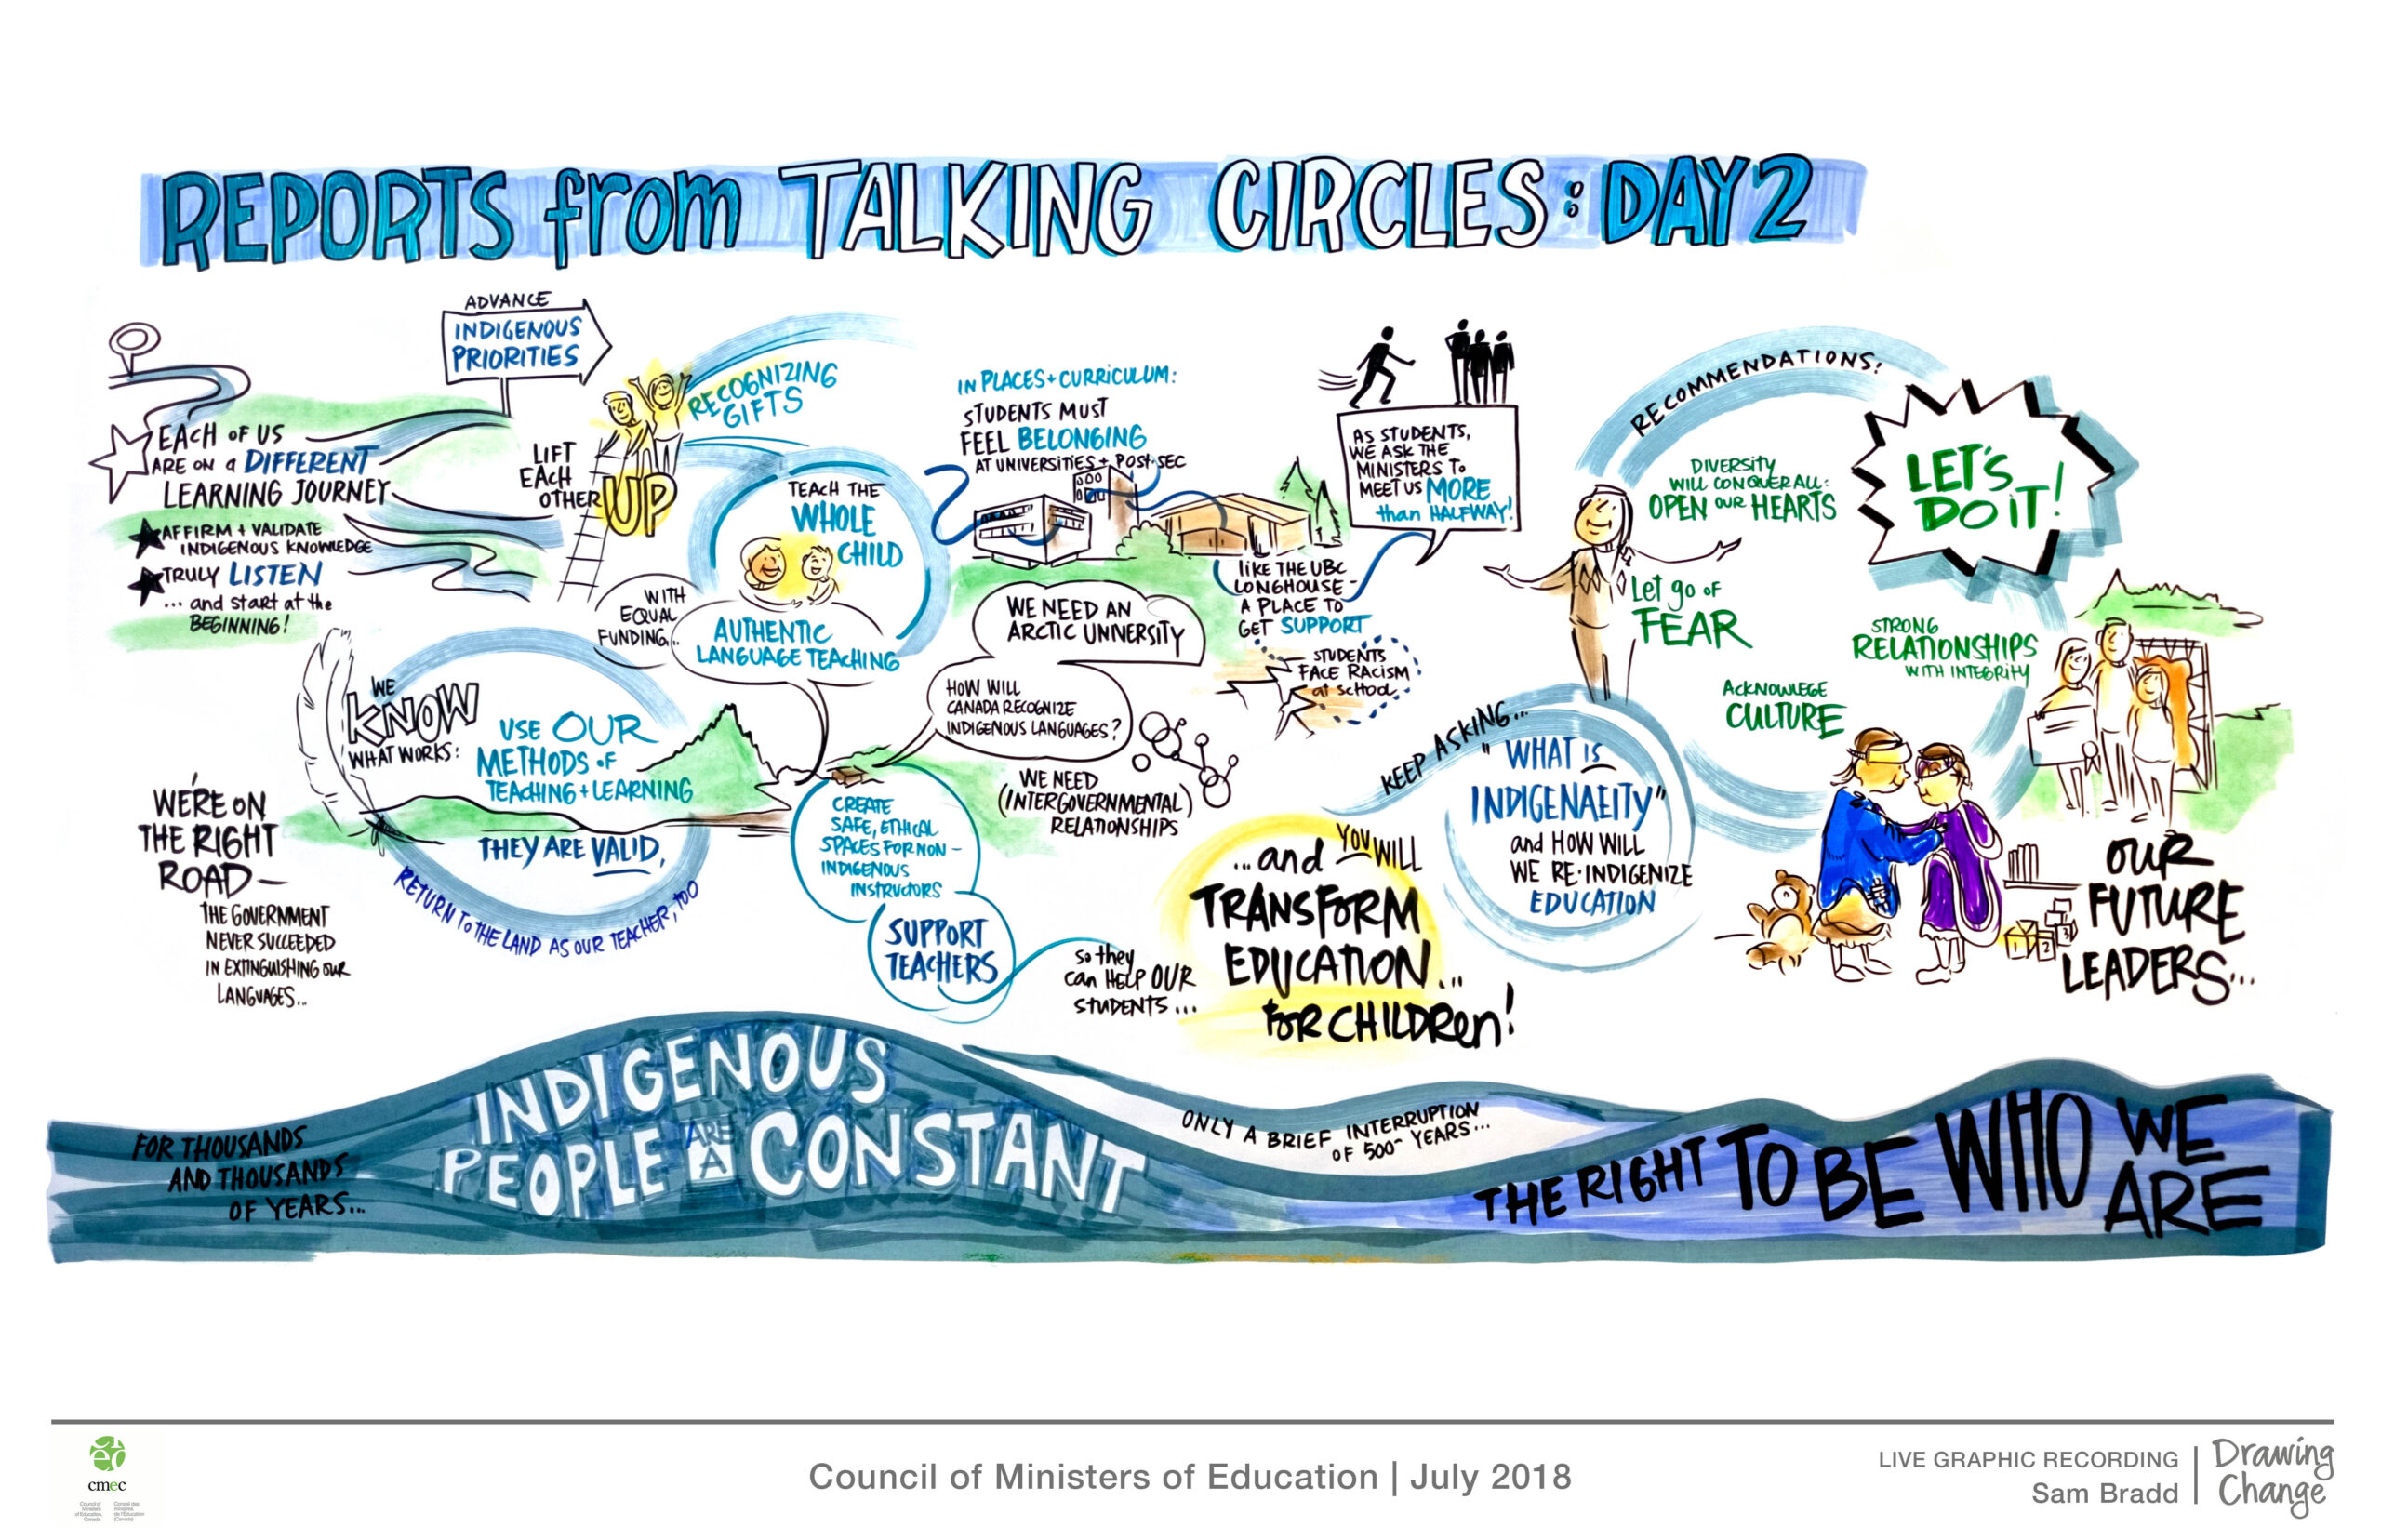 REPORTS from TALKING CIRCLES: DAY 2
ADVANCE
INDIGENOUS
PRIORITIES
EACH OF US
ARE ON a DIFFERENT
LEARNING JOURNEY
AFFIRM + VALIDATE
INDIGENOUS KNOWLEDGE
TRULY LISTEN
... and start at the
BEGINNING!
LIFT
EACH
OTHER UP
RECOGNIZING
GIFTS
TEACH THE
WHOLE
CHILD
WITH
EQUAL
FUNDING...
AUTHENTIC
LANGUAGE TEACHING
IN PLACES + CURRICULUM:
STUDENTS MUST
FEEL BELONGING
AT UNIVERSITIES + POST-SEC
LIKE THE UBC
LONGHOUSE -
A PLACE TO
GET SUPPORT
AS STUDENTS,
WE ASK THE
MINISTERS TO
MEET US MORE
than HALFWAY!
STUDENTS
FACE RACISM
at school
WE NEED AN
ARCTIC UNIVERSITY
HOW WILL
CANADA RECOGNIZE
INDIGENOUS LANGUAGES?
WE NEED
(INTERGOVERNMENTAL)
RELATIONSHIPS
WE
KNOW
WHAT WORKS:
USE OUR
METHODS OF
TEACHING + LEARNING
THEY ARE VALID,
RETURN TO THE LAND AS OUR TEACHER, TOO
WE'RE ON
THE RIGHT
ROAD—
THE GOVERNMENT
NEVER SUCCEEDED
IN EXTINGUISHING OUR
LANGUAGES...
CREATE
SAFE, ETHICAL
SPACES FOR NON-
INDIGENOUS
INSTRUCTORS
SUPPORT
TEACHERS
So they
can HELP OUR
STUDENTS...
...and YOU WILL
TRANSFORM
EDUCATION...
FOR CHILDREN!
RECOMMENDATIONS:
DIVERSITY
WILL CONQUER ALL:
OPEN OUR HEARTS
LET'S
DO IT!
Let go OF
FEAR
STRONG
RELATIONSHIPS
WITH INTEGRITY
ACKNOWLEGE
CULTURE
KEEP ASKING...
"WHAT IS
INDIGENAEITY"
and HOW WILL
WE RE-INDIGENIZE
EDUCATION
1 2 3
OUR
FUTURE
LEADERS...
FOR THOUSANDS
AND THOUSANDS
OF YEARS...
INDIGENOUS
PEOPLE ARE A CONSTANT
ONLY A BRIEF INTERRUPTION
OF 500~ YEARS...
THE RIGHT TO BE WHO WE
ARE
cmec
Council of Ministers of Education, Canada
Conseil des ministres de l'Éducation (Canada)
Council of Ministers of Education | July 2018
LIVE GRAPHIC RECORDING
Sam Bradd
Drawing
Change